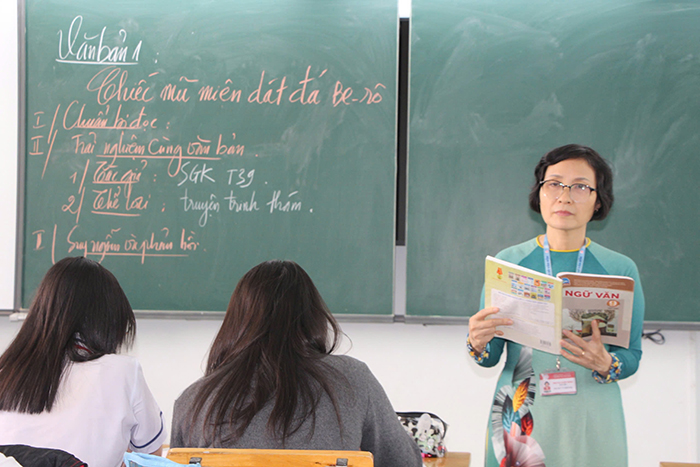 Văn bản 1:
Chiếc mũ miện dát đá Be-rô
I/ Chuẩn bị đọc:
II/ Trải nghiệm cùng văn bản.
1/ Tác giả: SGK T39.
2/ Thể loại: truyện trinh thám.
II/ Suy ngẫm và phản hồi.
NGỮ VĂN